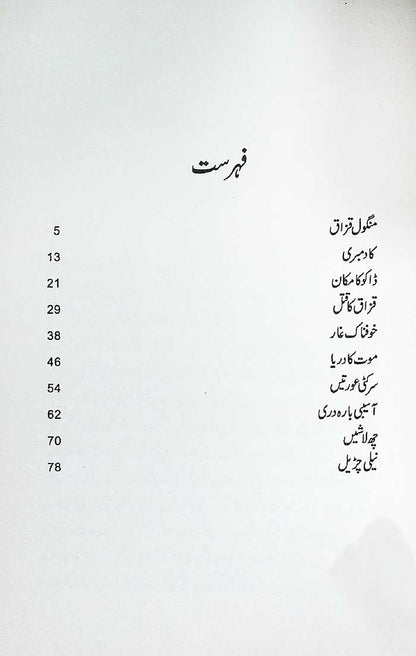 فہرست
منگول قزاق 5
کادمبری 13
ڈاکو کا مکان 21
قزاق کا قتل 29
خوفناک غار 38
موت کا دریا 46
سرکٹی عورتیں 54
آسیبی بارہ دری 62
چھ لاشیں 70
نیلی چڑیل 78